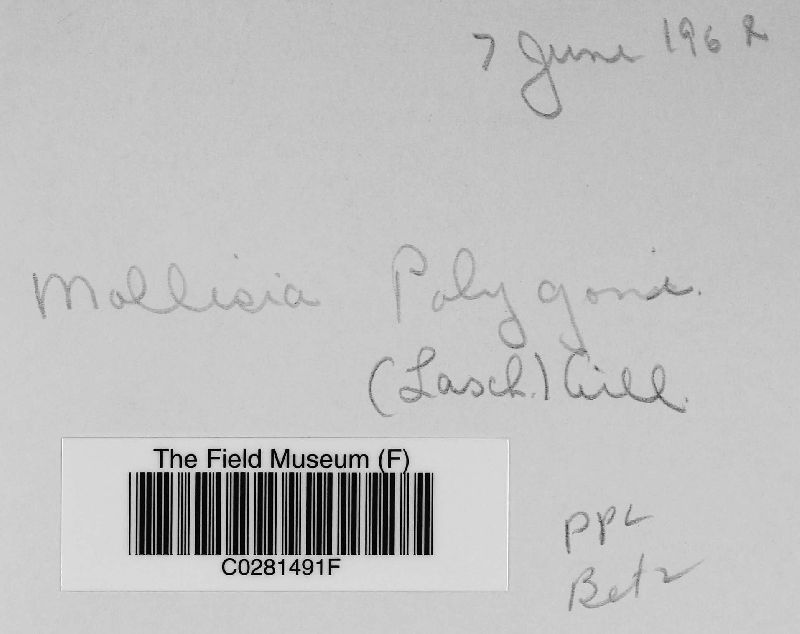 7 June 1962
Mollisia Polygoni.
(Lasch.) Gill.
The Field Museum (F)
C0281491F
PPL
Betz